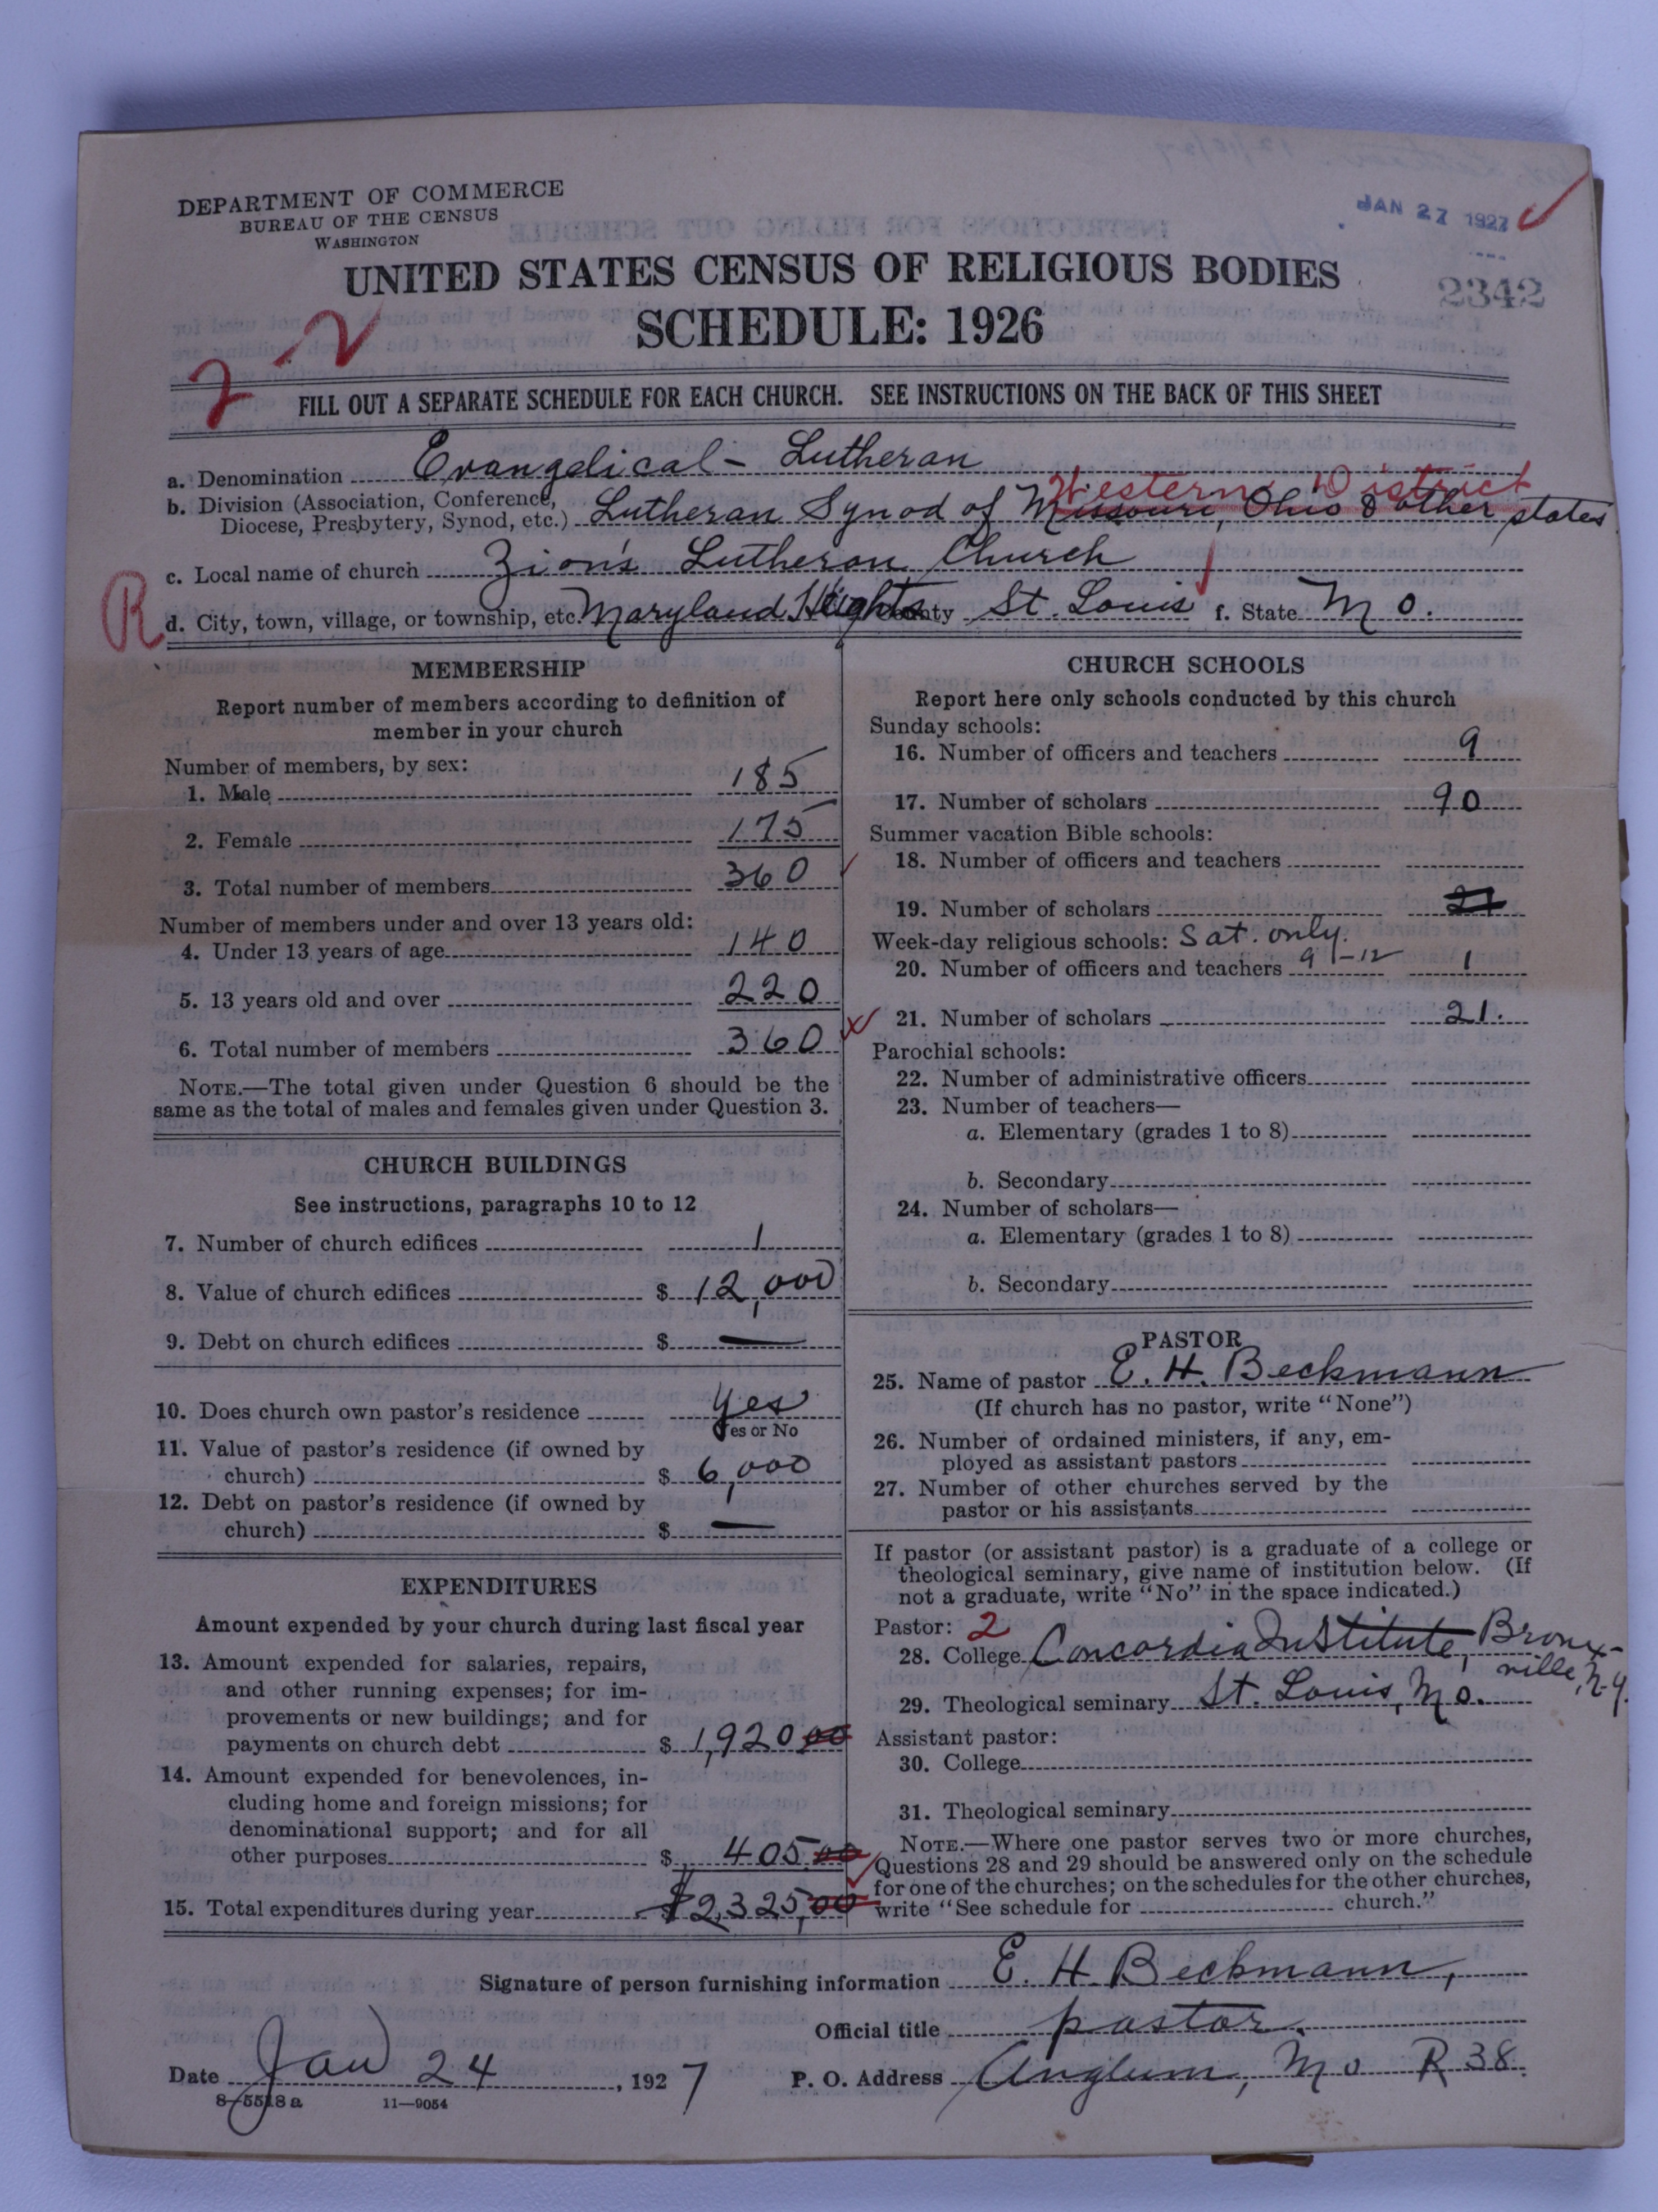 DEPARTMENT OF COMMERCE
BUREAU OF THE CENSUS
WASHINGTON
JAN 27 1927
2342
UNITED STATES CENSUS OF RELIGIOUS BODIES
SCHEDULE: 1926
2 2
FILL OUT A SEPARATE SCHEDULE FOR EACH CHURCH. SEE INSTRUCTIONS ON THE BACK OF THIS SHEET
a. Denomination Evangelical - Lutheran
Western District
b. Division (Association, Conference,
Diocese, Presbytery, Synod, etc.) Lutheran Synod of Missouri, Ohio & other states
c. Local name of church Zion's Lutheran Church
R
d. City, town, village, or township, etc. Maryland Heights County St. Louis f. State Mo.
MEMBERSHIP
Report number of members according to definition of
member in your church
Number of members, by sex:
1. Male 185
2. Female 175
3. Total number of members 360
Number of members under and over 13 years old:
4. Under 13 years of age 140
5. 13 years old and over 220
6. Total number of members 360
NOTE.—The total given under Question 6 should be the
same as the total of males and females given under Question 3.
CHURCH BUILDINGS
See instructions, paragraphs 10 to 12
7. Number of church edifices 1
8. Value of church edifices $ 12,000
9. Debt on church edifices $ —
10. Does church own pastor's residence Yes
Yes or No
11. Value of pastor's residence (if owned by
church) $ 6,000
12. Debt on pastor's residence (if owned by
church) $ —
EXPENDITURES
Amount expended by your church during last fiscal year
13. Amount expended for salaries, repairs,
and other running expenses; for im-
provements or new buildings; and for
payments on church debt $ 1,920 00
14. Amount expended for benevolences, in-
cluding home and foreign missions; for
denominational support; and for all
other purposes $ 405.00
15. Total expenditures during year $2,325,00
CHURCH SCHOOLS
Report here only schools conducted by this church
Sunday schools:
16. Number of officers and teachers 9
17. Number of scholars 90
Summer vacation Bible schools:
18. Number of officers and teachers
19. Number of scholars 21
Week-day religious schools: Sat. only.
20. Number of officers and teachers 9-12 1
21. Number of scholars 21.
Parochial schools:
22. Number of administrative officers
23. Number of teachers—
a. Elementary (grades 1 to 8)
b. Secondary
24. Number of scholars—
a. Elementary (grades 1 to 8)
b. Secondary
PASTOR
25. Name of pastor E. H. Beckmann
(If church has no pastor, write "None")
26. Number of ordained ministers, if any, em-
ployed as assistant pastors
27. Number of other churches served by the
pastor or his assistants
If pastor (or assistant pastor) is a graduate of a college or
theological seminary, give name of institution below. (If
not a graduate, write "No" in the space indicated.)
Pastor: 2
28. College Concordia Institute, Bronx-
ville, N.Y.
29. Theological seminary St. Louis, Mo.
Assistant pastor:
30. College
31. Theological seminary
NOTE.—Where one pastor serves two or more churches,
Questions 28 and 29 should be answered only on the schedule
for one of the churches; on the schedules for the other churches,
write "See schedule for church."
Signature of person furnishing information E. H. Beckmann,
Official title pastor.
Date Jan 24, 1927 P. O. Address Anglum, Mo R 38.
8-5518a 11—9054